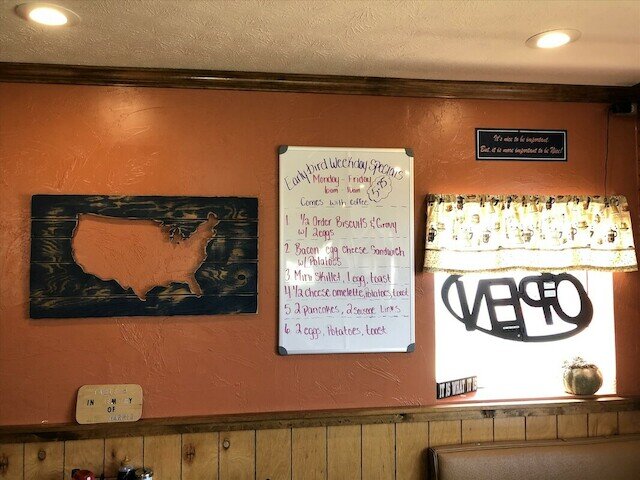 It's nice to be important.
But, it is more important to be Nice!
Early bird Weekday Specials
Monday - Friday
6am 11am
Comes with coffee
1 1/2 Order Biscuits & Gravy
w/ 2 eggs
2 Bacon egg cheese Sandwich
w/ Potatoes
3 Mini Skillet, 1 egg, toast
4 1/2 cheese omelette, potatoes, toast
5 2 Pancakes, 2 sausage Links
6 2 eggs, Potatoes, toast
OPEN
IT IS WHAT IT
IN
OF